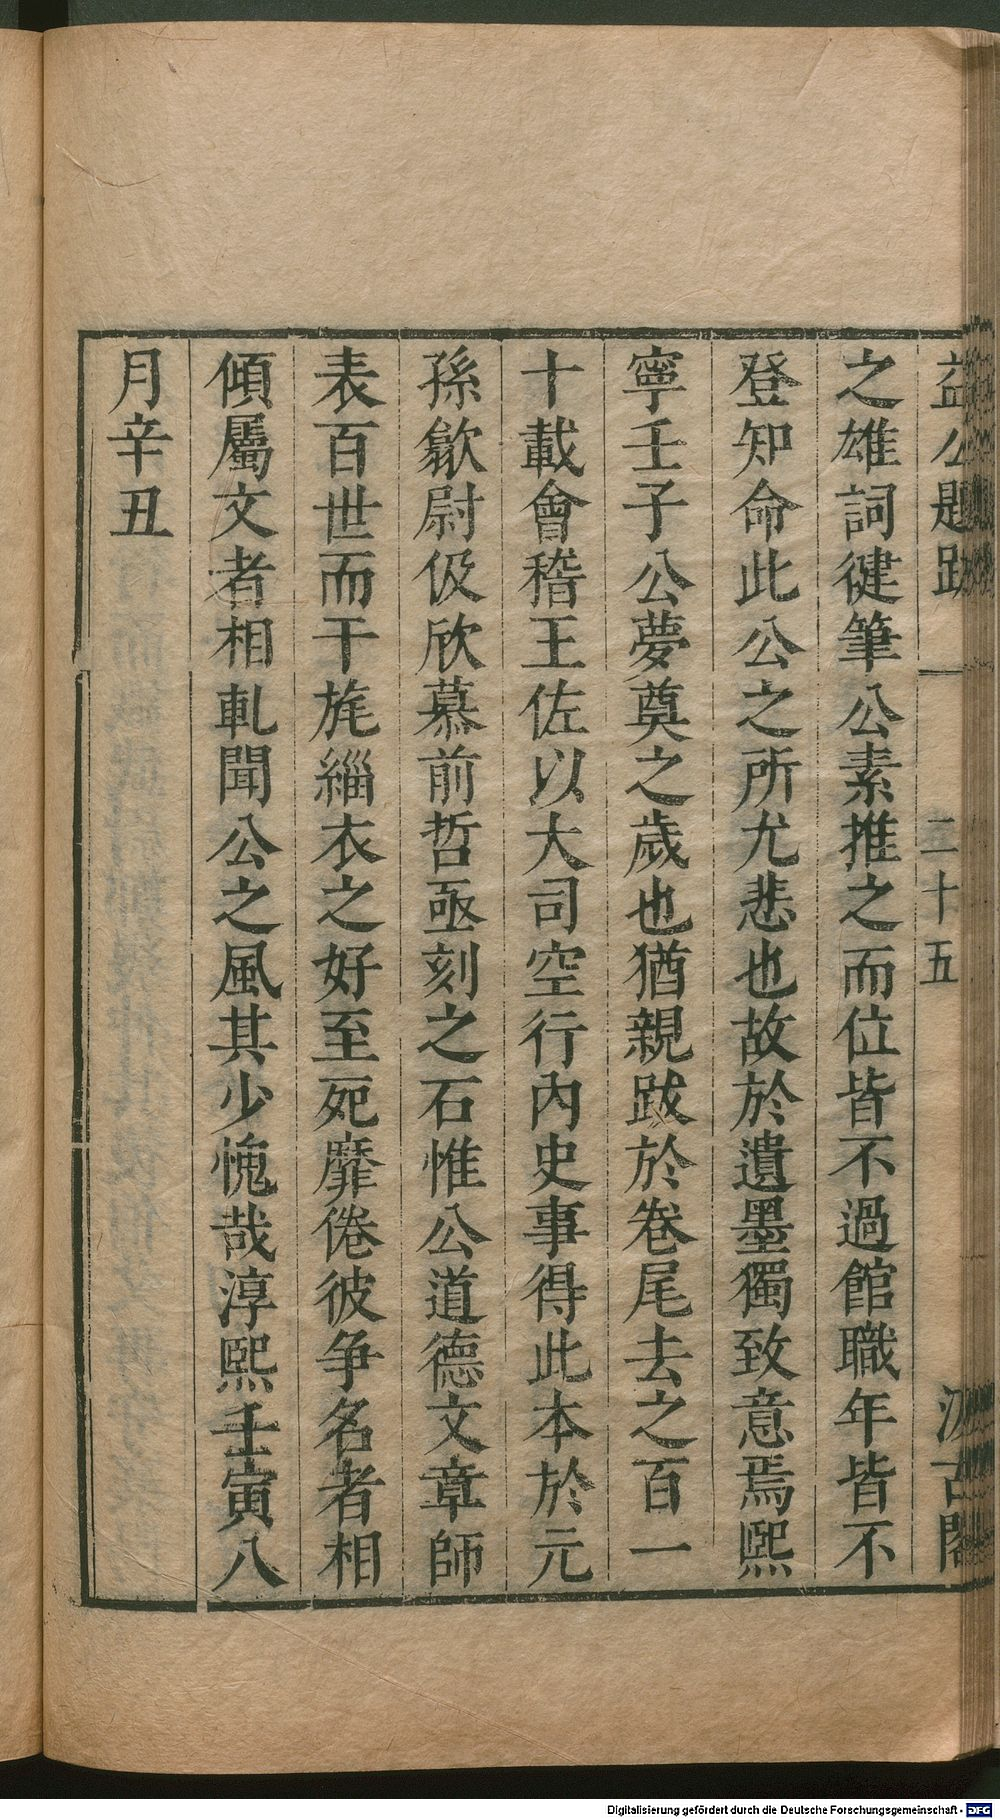 益公題跋 一 二十五 汲古閣
之雄詞健筆公素推之而位皆不過館職年皆不
登知命此公之所尤悲也故於遺墨獨致意焉熙
寧壬子公夢奠之歲也猶親跋於卷尾去之百一
十載會稽王佐以大司空行內史事得此本於元
孫歙尉伋欣慕前哲亟刻之石惟公道德文章師
表百世而干旄緇衣之好至死靡倦彼爭名者相
傾屬文者相軋聞公之風其少愧哉淳熙壬寅八
月辛丑
Digitalisierung gefördert durch die Deutsche Forschungsgemeinschaft - DFG